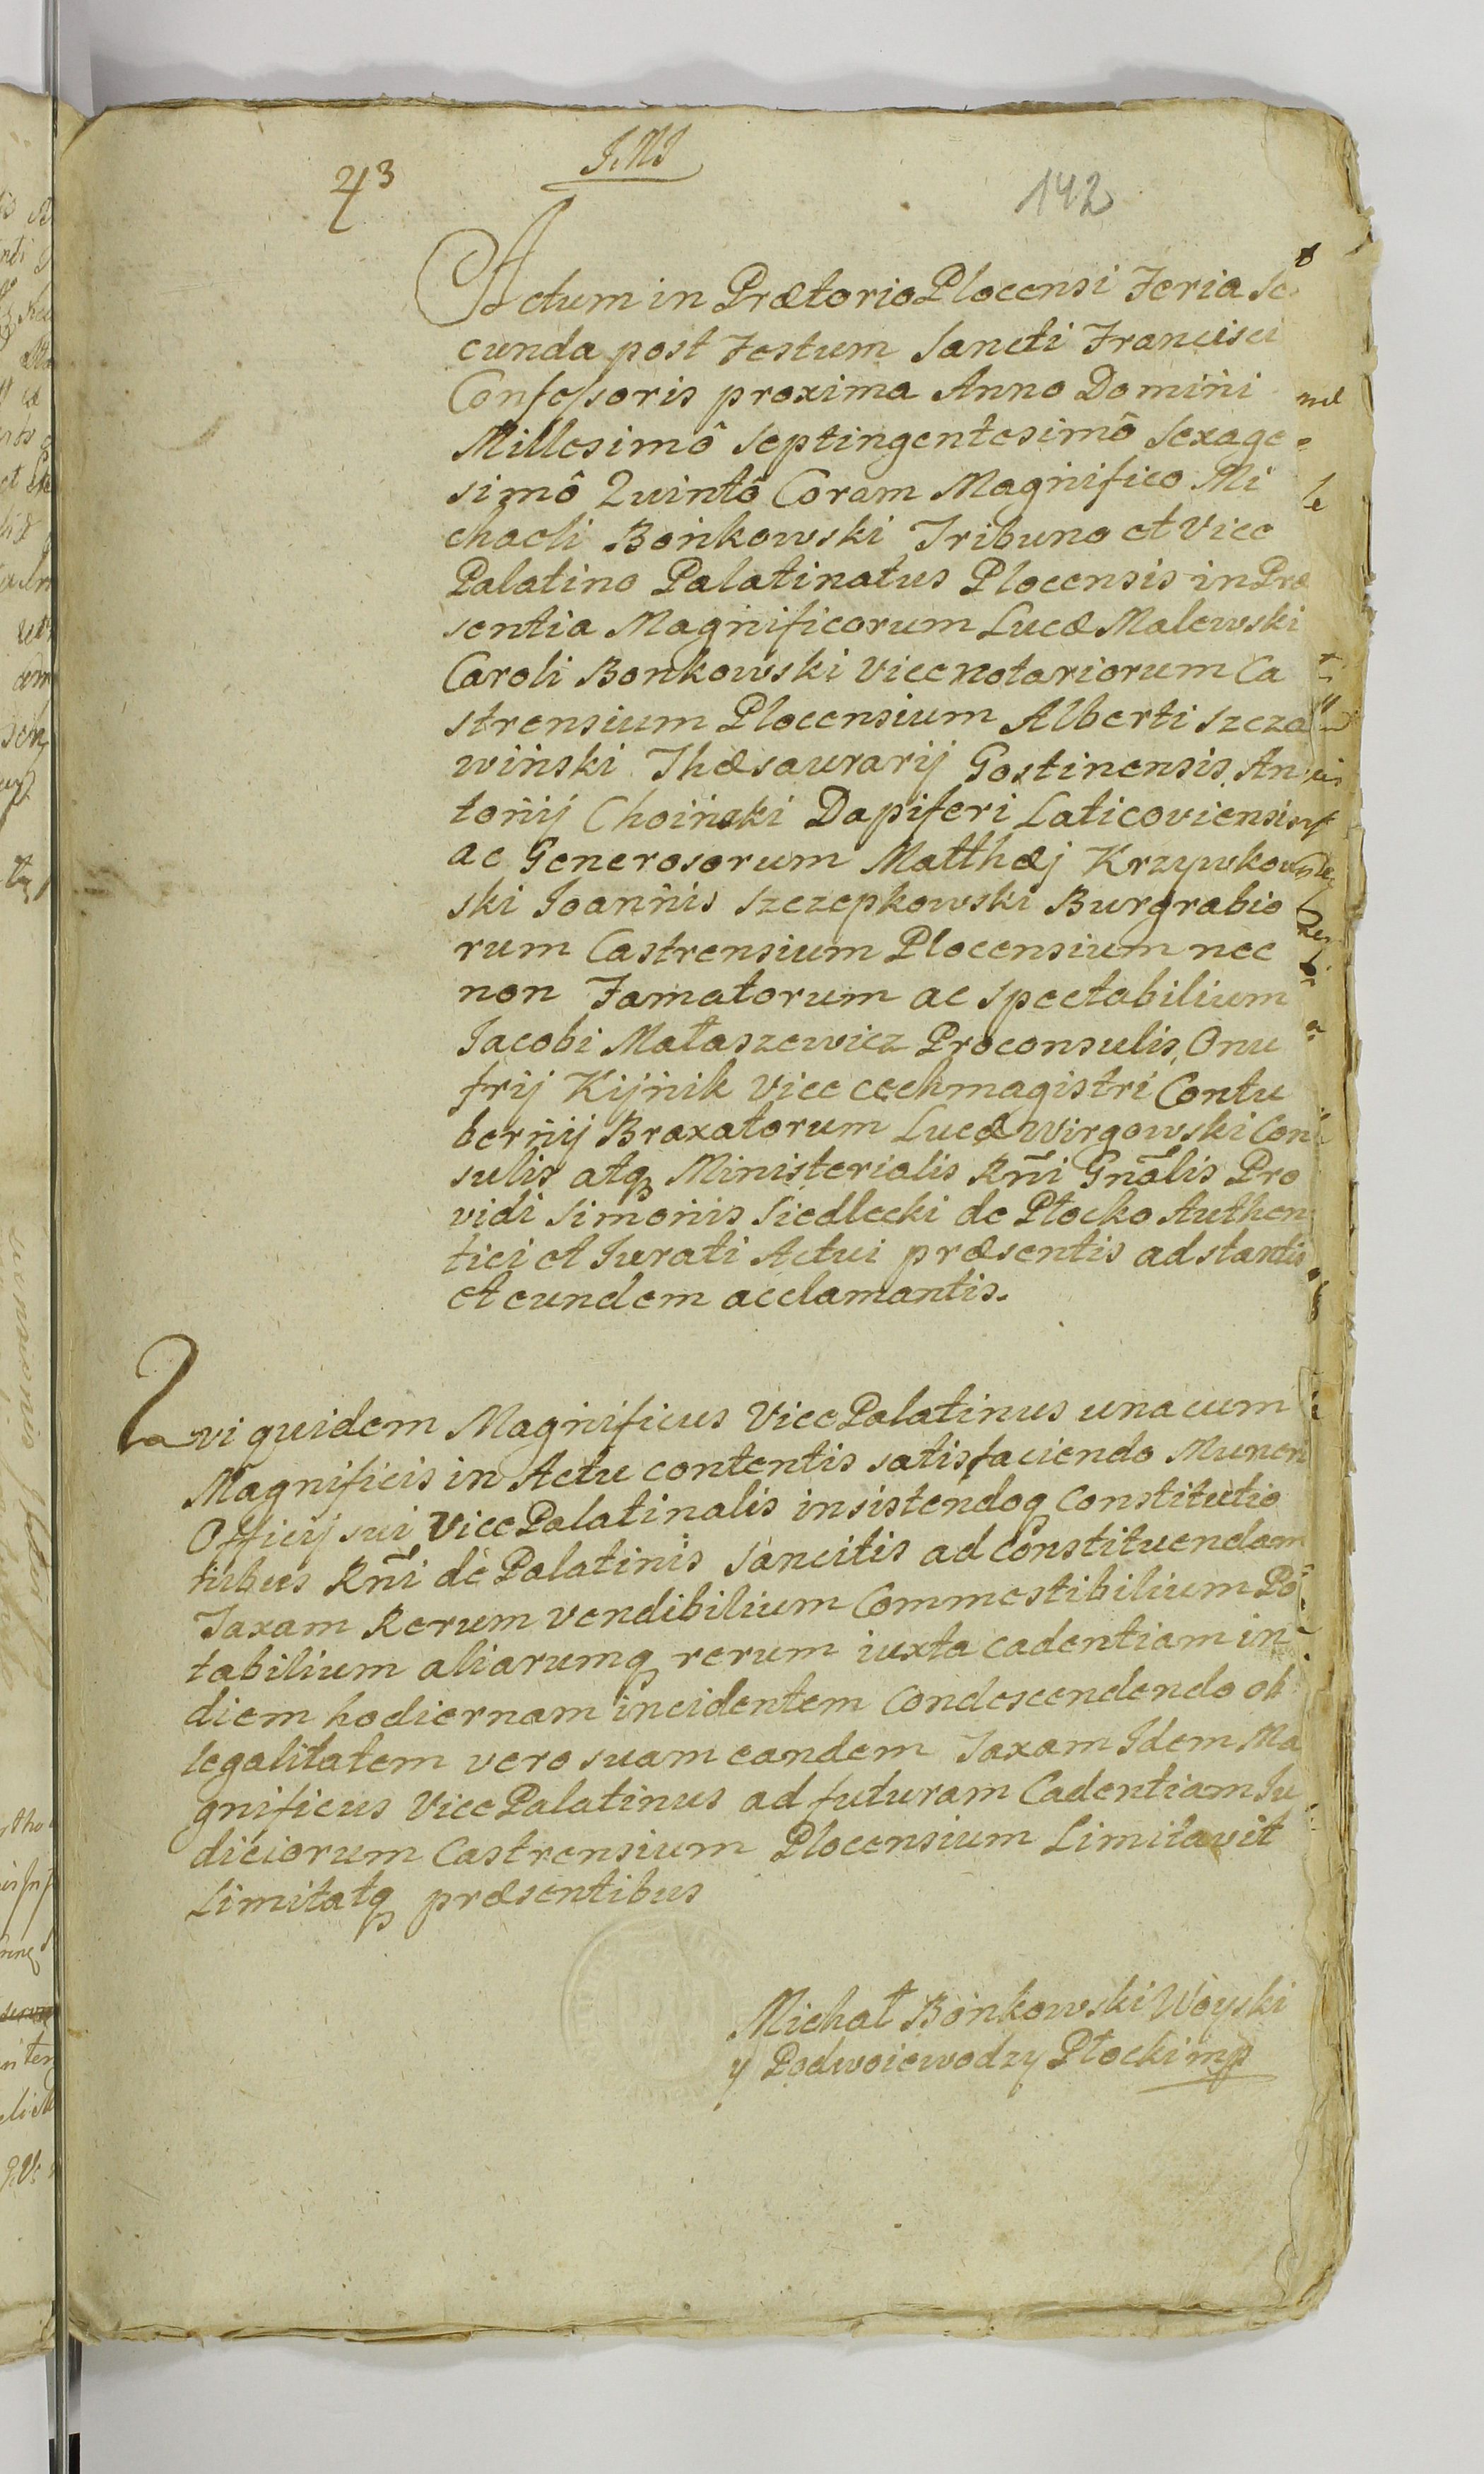 J. M. J
43
142
Actum in Prætorio Plocensi Feria Se
cunda post Festum Sancti Francisci
Confessoris proxima Anno Domini
Millesimô Septingentesimô Sexage
simô Quintô Coram Magnifico Mi
chaeli Bońkowski Tribuno et Vice
Palatino Palatinatus Plocensis in Præ
sentia Magnificorum Lucæ Malewski
Caroli Bonkowski Vice notariorum Ca
strensium Plocensium Alberti Szcza
wiński Thæsaurarij Gostinensis, An
tonij Choiński Dapiferi Laticoviensis
ac Generosorum Matthæj Krzywkow
ski Joannis Szczepkowski Burgrabio
rum Castrensium Plocensium nec
non Famatorum ac Spectabilium
Jacobi Mataszewicz Proconsulis, Onu
frij Kijnik Vice cechmagistri Contu
bernij Braxatorum Lucæ Wirgowski Con
sulis atq Ministerialis Rñi Gnãlis Pro
vidi Simonis Siedlecki de Płocko Authen
tici et Jurati Actui præsentis adstantis
et eundem acclamantis.
Qvi quidem Magnificus Vice Palatinus una cum
Magnificis in Actu contentis satisfaciendo Muneri
Officij sui Vice Palatinalis insistendoq Constitutio
nibus Rñi de Palatinis sancitis ad constituendam
Taxam Rerum vendibilium Commestibilium Po
tabilium aliarumq rerum iuxta cadentiam in
diem hodiernam incidentem Condescendendo ob
legalitatem vero suam eandem Taxam Idem Ma
gnificus Vice Palatinus ad futuram Cadentiam Ju
diciorum Castrensium Plocensium Limitavit
Limitatq præsentibus
Michał Bońkowski Woyski
y Podwoiewodzy Płocki mp